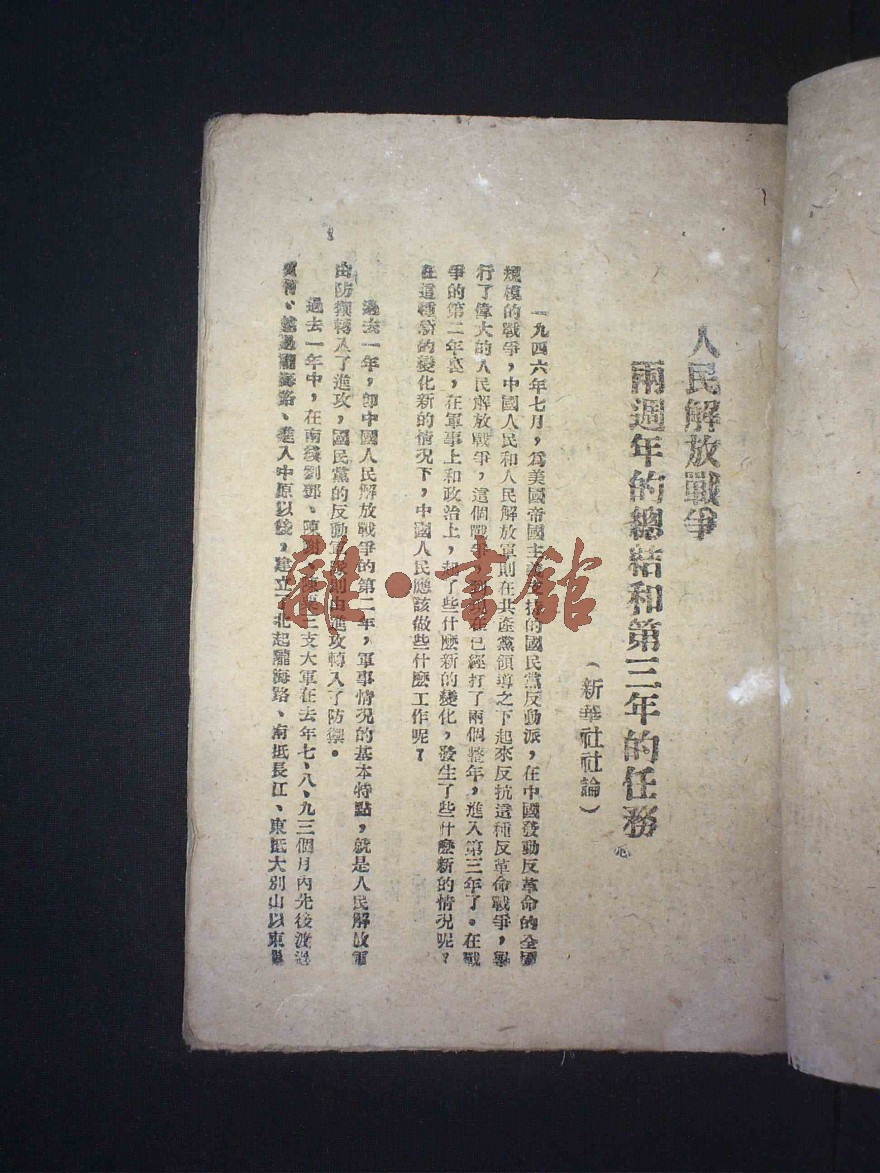 人民解放戰爭
兩週年的總結和第三年的任務
(新華社社論)
一九四六年七月,爲美國帝國主義支持的國民黨反動派,在中國發動反革命的全國
規模的戰爭,中國人民和人民解放軍則在共產黨領導之下起來反抗這種反革命戰爭,舉
行了偉大的人民解放戰爭,這個戰爭到現在已經打了兩個整年,進入第三年了。在戰
爭的第二年裏,在軍事上和政治上,起了些什麽新的變化,發生了些什麽新的情況呢?
在這種新的變化新的情況下,中國人民應該做些什麽工作呢?
過去一年,卽中國人民解放戰爭的第二年,軍事情况的基本特點,就是人民解放軍
由防禦轉入了進攻,國民黨的反動軍隊則由進攻轉入了防禦。
過去一年中,在南綫劉鄧、陳謝、陳粟三支大軍在去年七、八、九三個月內先後渡過
黃河、越過隴海路、進入中原以後,建立了北起隴海路、南抵長江、東抵大別山以東
雜·書館